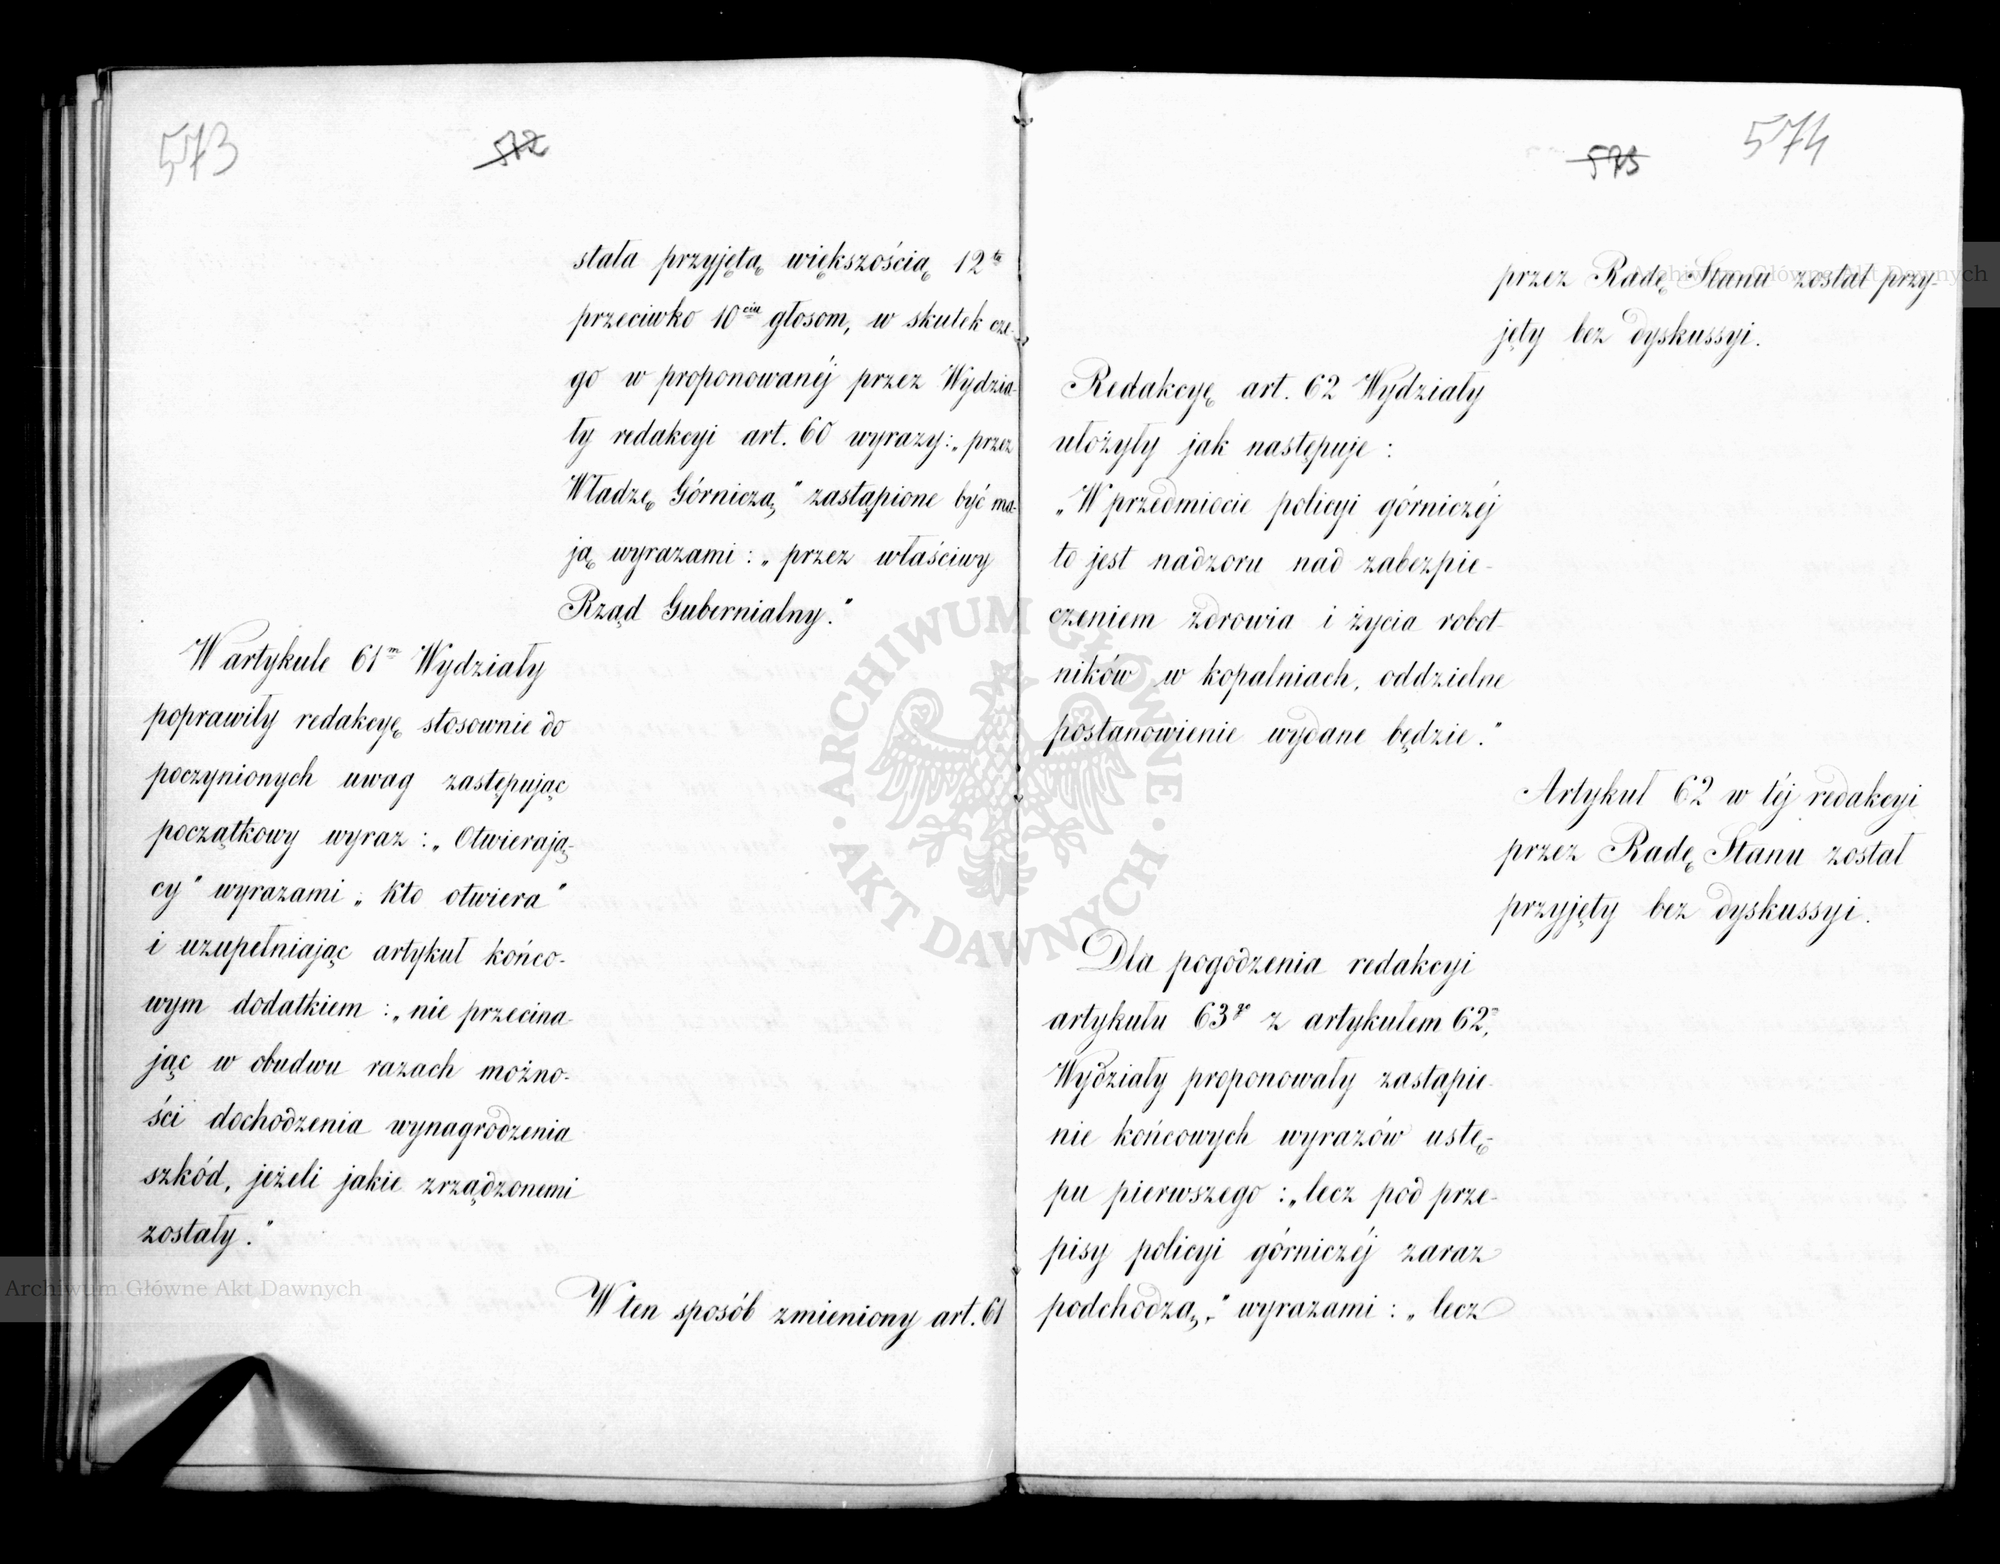 573
572
stała przyjętą większością 12tu
przeciwko 10ciu głosom, w skutek cze-
go w proponowanéj przez Wydzia-
ły redakcyi art. 60 wyrazy: „przez
Władzę Górniczą” zastąpione być ma-
ją wyrazami: „przez właściwy
Rząd Gubernialny.”
W artykule 61m Wydziały
poprawiły redakcyę stosownie do
poczynionych uwag zastępując
początkowy wyraz: „Otwierają-
cy” wyrazami „Kto otwiera”
i uzupełniając artykuł końco-
wym dodatkiem: „nie przecina-
jąc w obudwu razach możno-
ści dochodzenia wynagrodzenia
szkód, jeżeli jakie zrządzonemi
zostały.”
W ten sposób zmieniony art. 61
574
573
przez Radę Stanu został przy-
jęty bez dyskussyi.
Redakcyę art. 62 Wydziały
ułożyły jak następuje:
„W przedmiocie policyi górniczéj
to jest nadzoru nad zabezpie-
czeniem zdrowia i życia robot-
ników w kopalniach, oddzielne
postanowienie wydane będzie.”
Artykuł 62 w téj redakcyi
przez Radę Stanu został
przyjęty bez dyskussyi.
Dla pogodzenia redakcyi
artykułu 63go z artykułem 62,
Wydziały proponowały zastąpie-
nie końcowych wyrazów ustę-
pu pierwszego: „lecz pod prze-
pisy policyi górniczéj zaraz
podchodzą,” wyrazami: „lecz
ARCHIWUM GŁÓWNE · AKT DAWNYCH ·
Archiwum Główne Akt Dawnych
Archiwum Główne Akt Dawnych